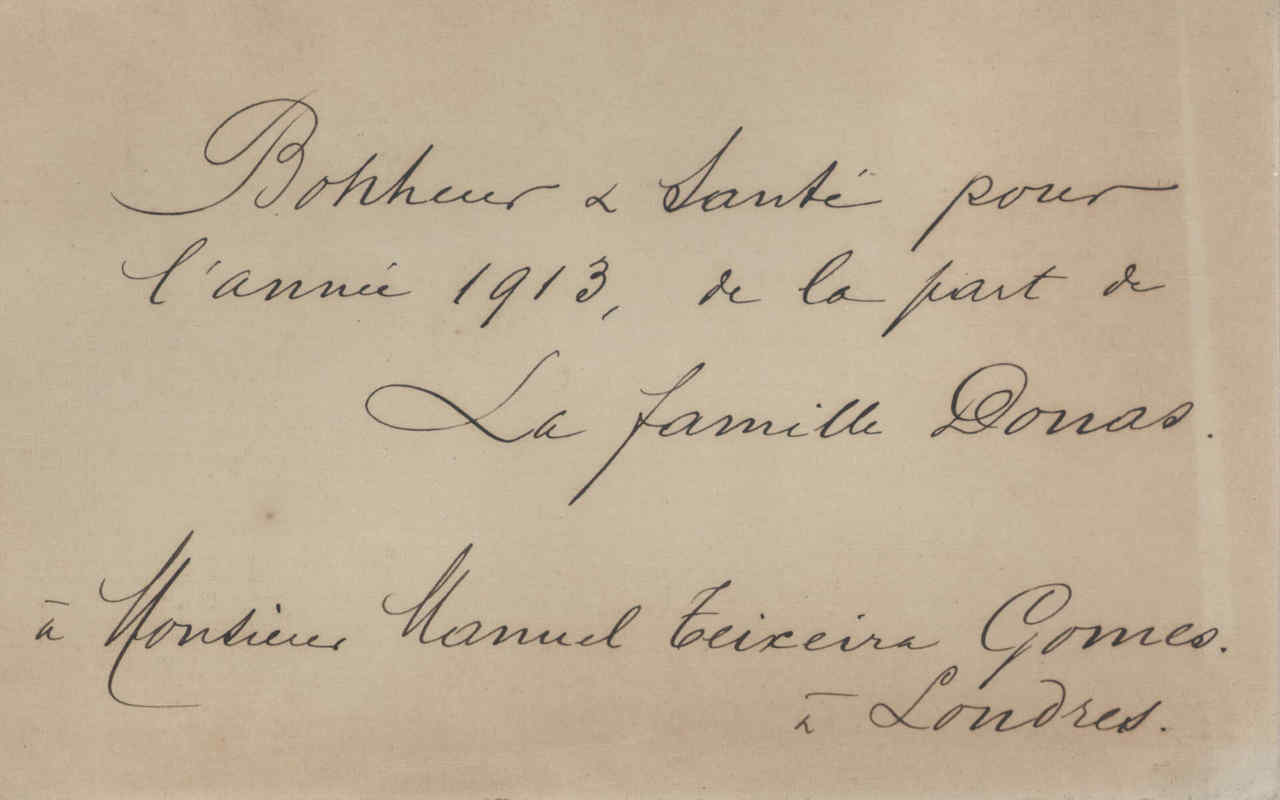 Bonheur & Santé pour
l'année 1913, de la part de
La famille Donas.
à Monsieur Manuel Teixeira Gomes.
à Londres.